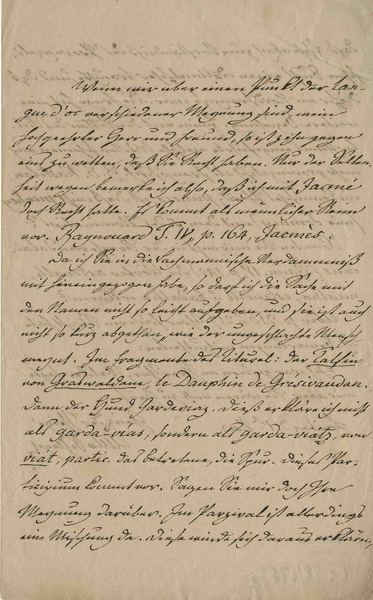 Wenn wir über einen Punkt der lan-
gue d'oc verschiedener Meynung sind, mein
hochgeehrter Herr und Freund, so ist zehn gegen
eins zu wetten, daß Sie Recht haben. Nur der Selten-
heit wegen bemerke ich also, daß ich mit Jacmé
doch Recht hatte. Es kommt als männlicher Reim
vor. Raynouard T. IV, p. 164, Jacmès.
Da ich Sie in die Lachmannische Verdammniß
mit hineingezogen habe, so darf ich die Sache mit
den Namen nicht so leicht aufgeben, und sie ist auch
nicht so kurz abgethan, wie der ungeschlachte Mensch
meynt. Im fragmente des Titurel: der Talfin
von Graswaldane, le Dauphin de Grésivaudan.
Dann der Hund Gardeviaz. Dieß erkläre ich nicht
als garda-vias, sondern als garda-viatz, von
viat, partic. das betretene, die Spur. Dieses Par-
ticipium kommt vor. Sagen Sie mir doch Ihre
Meynung darüber. Im Parzival ist allerdings
eine Mischung da. Diese würde sich daraus erklären,